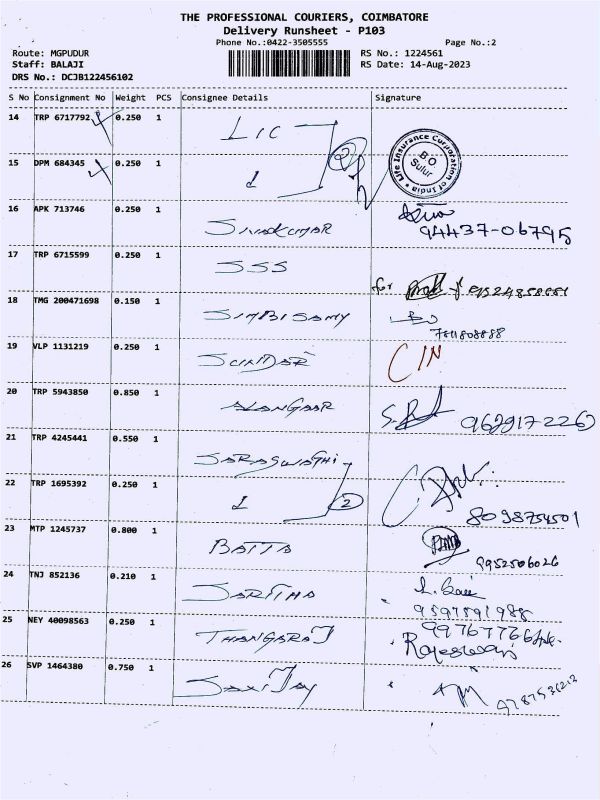 THE PROFESSIONAL COURIERS, COIMBATORE
Delivery Runsheet - P103
Phone No.:0422-3505555 Page No.:2
Route: MGPUDUR RS No.: 1224561
Staff: BALAJI RS Date: 14-Aug-2023
DRS No.: DCJB122456102
S No Consignment No Weight PCS Consignee Details Signature
14 TRP 6717792 0.250 1 LIC
Life Insurance Corporation of India
B.O
Sulur
15 DPM 684345 0.250 1 2
16 APK 713746 0.250 1 SIVAKUMAR
94437-06795
17 TRP 6715599 0.250 1 SSS
for
18 TMG 200471698 0.150 1
19 VLP 1131219 0.250 1 SUNDAR
20 TRP 5943850 0.850 1
9629172260
21 TRP 4245441 0.550 1 SARASWATHI
22 TRP 1695392 0.250 1 2
8098754501
23 MTP 1245737 0.800 1 BATTA
9952506026
24 TNJ 852136 0.210 1 SARITHA
9597591988
25 NEY 40098563 0.250 1 THANGARAJ
Rajeswari
26 SVP 1464380 0.750 1